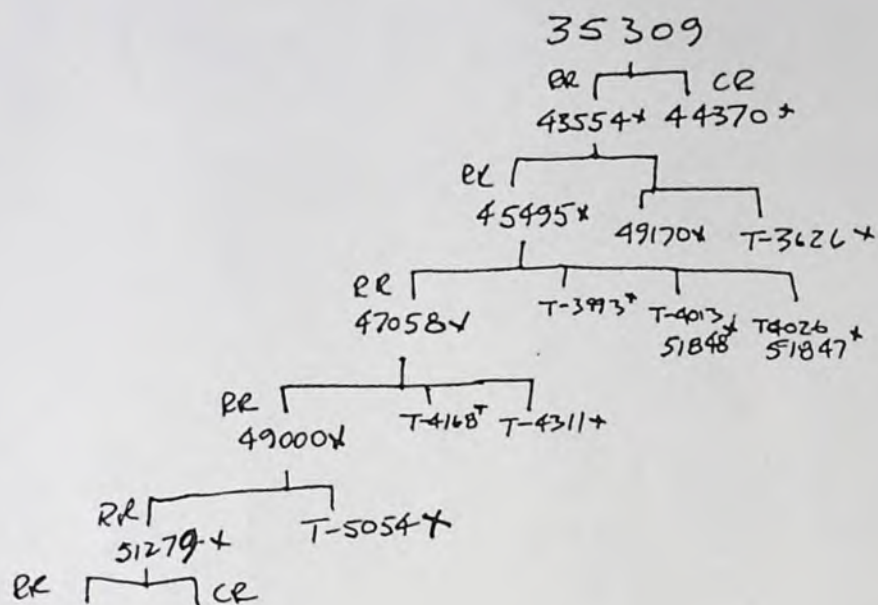 35309
RR CR
43554* 44370*
RR
45495* 49170* T-3626*
RR
47058* T-3993* T-4013 T4026
51848* 51847*
RR
49000* T-4168T T-4311+
RR
51279-* T-5054*
RR CR